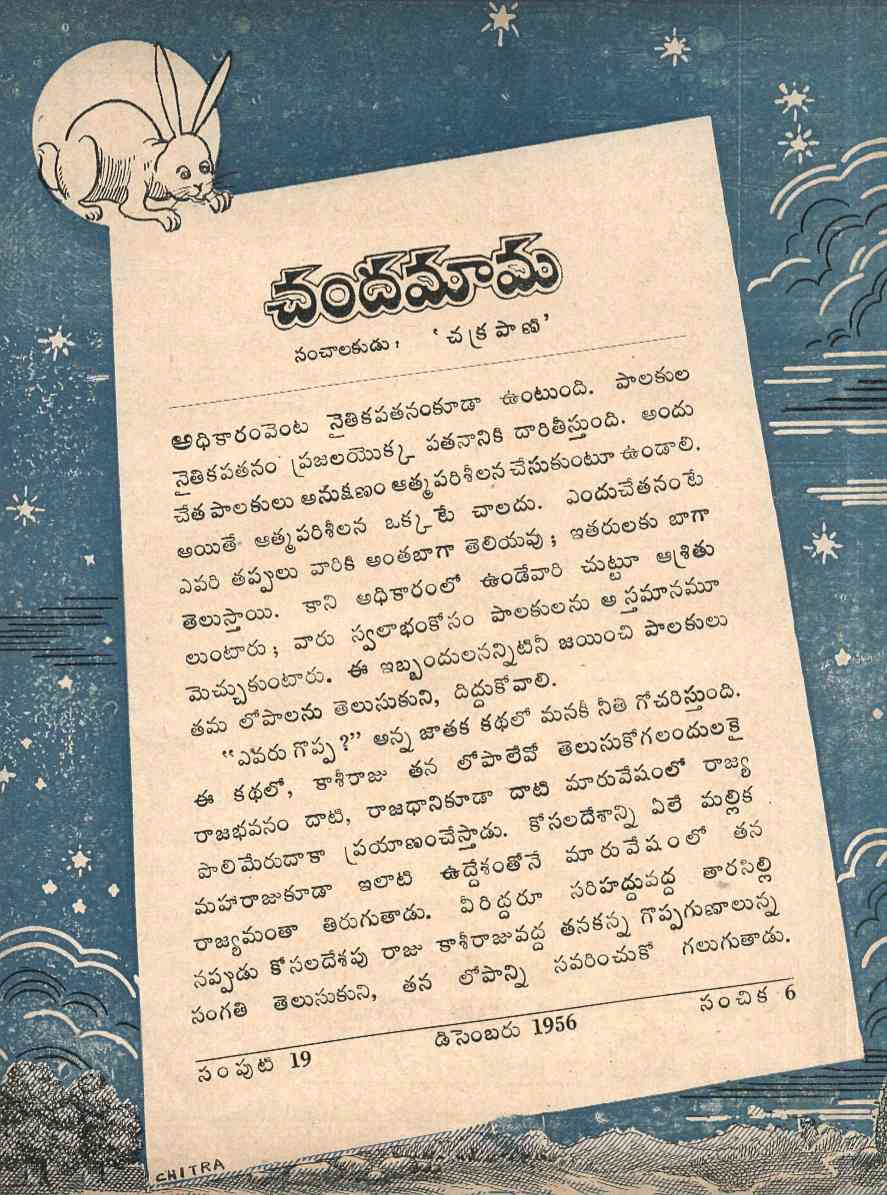 చందమామ
సంచాలకుడు : ‘చక్రపాణి’
అధికారంవెంట నైతికపతనంకూడా ఉంటుంది. పాలకుల
నైతికపతనం ప్రజలయొక్క పతనానికి దారితీస్తుంది. అందు
చేత పాలకులు అనుక్షణం ఆత్మపరిశీలన చేసుకుంటూ ఉండాలి.
అయితే ఆత్మపరిశీలన ఒక్కటే చాలదు. ఎందుచేతనంటే
ఎవరి తప్పులు వారికి అంతబాగా తెలియవు ; ఇతరులకు బాగా
తెలుస్తాయి. కాని అధికారంలో ఉండేవారి చుట్టూ ఆశ్రితు
లుంటారు ; వారు స్వలాభంకోసం పాలకులను అస్తమానమూ
మెచ్చుకుంటారు. ఈ ఇబ్బందులనన్నిటినీ జయించి పాలకులు
తమ లోపాలను తెలుసుకుని, దిద్దుకోవాలి.
“ఎవరు గొప్ప ?” అన్న జాతక కథలో మనకీ నీతి గోచరిస్తుంది.
ఈ కథలో, కాశీరాజు తన లోపాలేవో తెలుసుకోగలందులకై
రాజభవనం దాటి, రాజధానికూడా దాటి మారువేషంలో రాజ్య
పొలిమేరుదాకా ప్రయాణంచేస్తాడు. కోసలదేశాన్ని ఏలే మల్లిక
మహారాజుకూడా ఇలాటి ఉద్దేశంతోనే మారువేషంలో తన
రాజ్యమంతా తిరుగుతాడు. వీరిద్దరూ సరిహద్దువద్ద తారసిల్లి
నప్పుడు కోసలదేశపు రాజు కాశీరాజువద్ద తనకన్న గొప్పగుణాలున్న
సంగతి తెలుసుకుని, తన లోపాన్ని సవరించుకో గలుగుతాడు.
సంపుటి 19 డిసెంబరు 1956 సంచిక 6
CHITRA